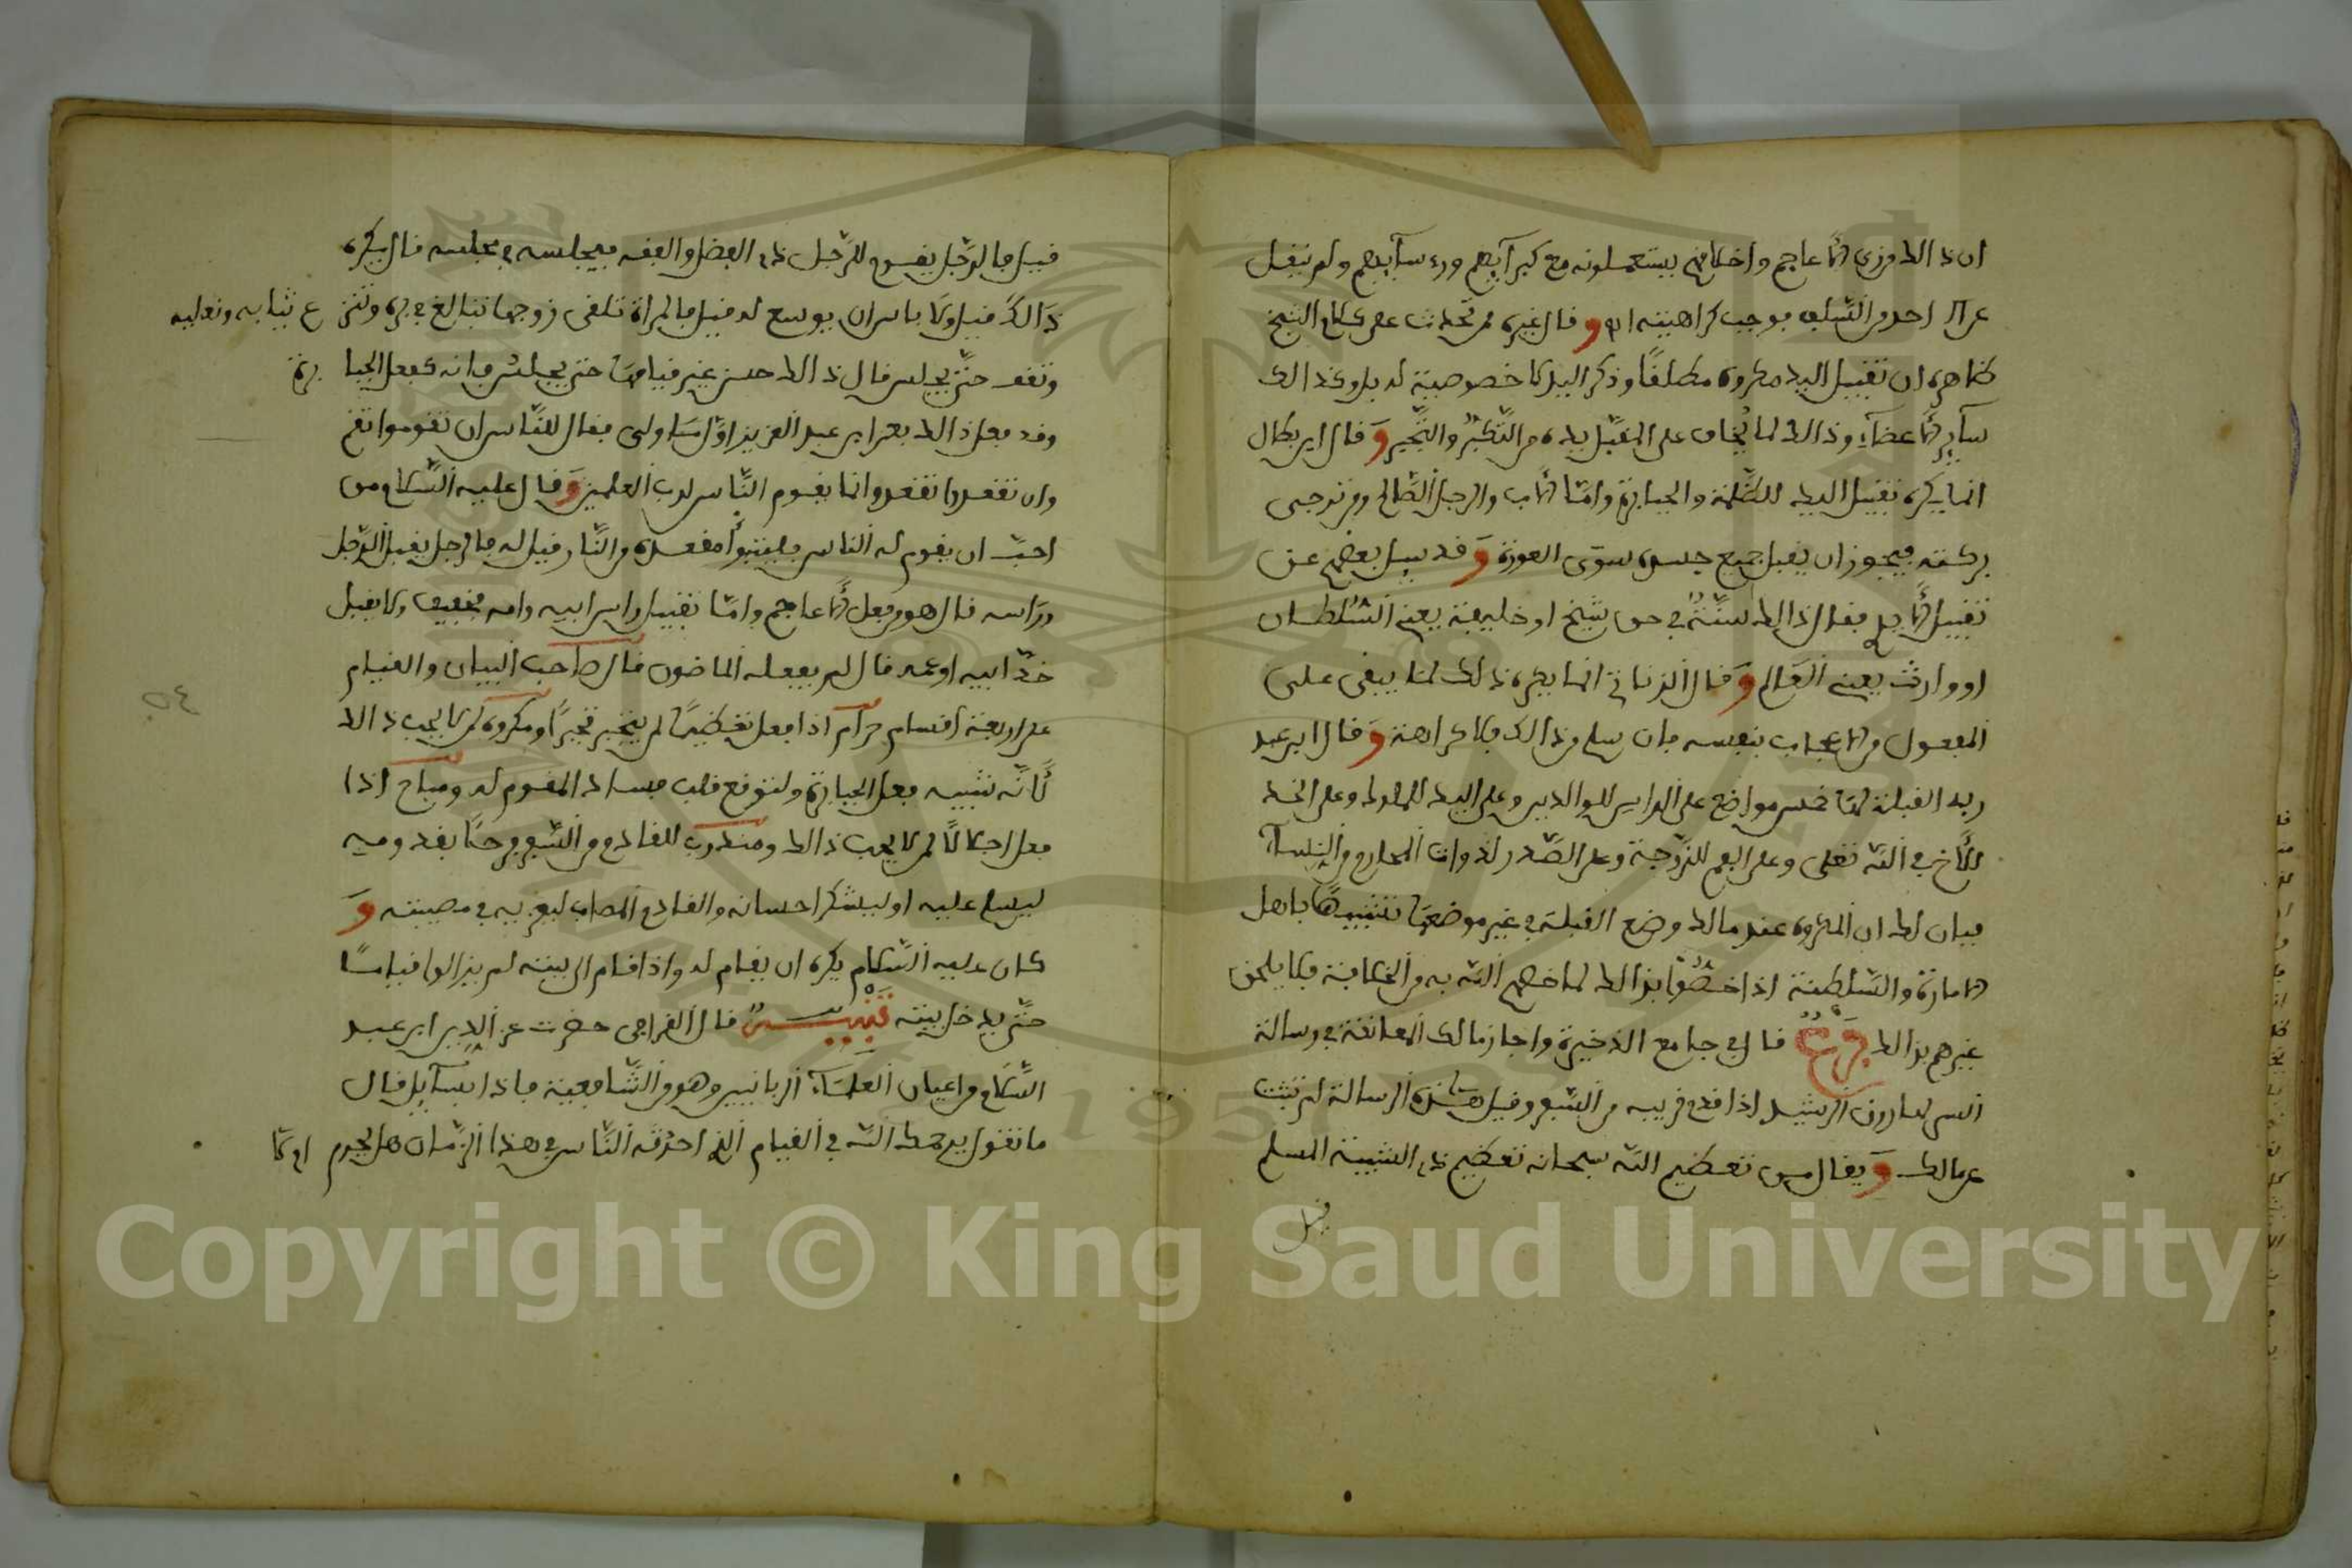 ان ذالك من زي الاعاجم واخلاقهم يستعملونه مع كبرآيهم ورءسآيهم ولم ينقل
عن احد من السلف بوجب كراهيته اه‍ و قال غيره ممن تحدث على كلام الشيخ
ظاهره ان تقبيل اليد مكروه مطلقًا وذكر اليد لا خصوصية له بل وكذالك
سآير الاعضآء وذالك لما يُخاف على المقبّل يده من التّكبّر والتّجبر وَ قال ابن بطال
انما يكره تقبيل اليد للظّلمة والجبابرة وامّا الاب والرجل الصّالح ومن ترجى
بركته فيجوز ان يقبل جميع جسده سوى العورة وَ قد سيل بعضهم عن
تقبيل الايدي فقال ذالك سنّة في حق شيخ او خليفة يعني السّلطان
او وارث يعني العالم وَ قال الزناتي انما يكره ذلك لما يبقى على
المفعول من الاعجاب بنفسه فان سلم من ذالك فلا كراهة وَ قال ابن عبد
ربه القبلة لها خمس مواضع على الراس للوالدين وعلى اليد للملوك وعلى الخد
للأخ في الله تعلى وعلى الفم للزّوجة وعلى الصّدر لذوات المحارم من النسآء
فبان لك ان المكروه عند مالك وضع القبلة في غير موضعها تشبيهًا باهل
الامارة والسّلطنة اذا خصّوا بذالك لما خصهم الله به من الخلافة فلا يلحق
غيرهم بذالك فرع قال في جامع الذخيرة واجاز مالك المعانقة في رسالة
السر لهارون الرشيد اذا قدم قريبه من السّفر وقيل هذه الرسالة لم تثبت
عن مالك وَ يقال من تعظيم الله سبحانه تعظيم ذي الشيبة المسلم
قيل
قيل فالرّجل يقوم للرّجل ذي الفضل والفقه فيجلسه في مجلسه قال يكره
ذالك قيل ولا باس ان يوسع له قيل فالمراة تلقى زوجها تبالغ في بره وتنزع ثيابه ونعليه
وتقف حتّى يجلس قال ذالك حسن غير قيامها حتى يجلس فانه كفعل الجبابرة
وقد فعل ذالك بعمر ابن عبد العزيز اوّل ما ولى فقال للنّاس ان تقوموا نقم
وان تقعدوا نقعد وانما يقوم النّاس لرب العلمين وَ قال عليه السّلام من
احبّ ان يقوم له الناس فليتبوأ مقعده من النّار قيل له فالرجل يقبل الرّجل
وراسه قال هو من فعل الاعاجم وامّا تقبيل راس ابيه وامه فخفيف ولا يقبل
خدّ ابيه او عمه قال لم يفعله الماضون قال صاحب البيان والقيام
على اربعة اقسام حرام اذا فعل تعظيمًا لمن يتجبر تجبرًا ومكروه لمن لا يحب ذالك
لأنّه تشبيه بفعل الجبابرة ولتوقع قلب فساد المقوم له ومباح اذا
فعل اجلالًا لمن لا يحب ذالك ومندوب للقادم من السّفر فرحًا بقدومه
ليسلم عليه او ليشكر احسانه والقادم المصاب ليعزيه في مصيبته وَ
كان عليه السّلام يكره ان يقام له واذا قام الى بيته لم يزالوا قيامًا
حتّى يدخل بيته تنبيه قال القرافي حضرت عز الدين ابن عبد
السّلام من اعيان العلمآء الربانيين وهو من الشّافعية فاذا بسآيل قال
ما تقول يرحمك الله في القيام الذي احدثه النّاس في هذا الزّمان هل يحرم ام لا
٥٤